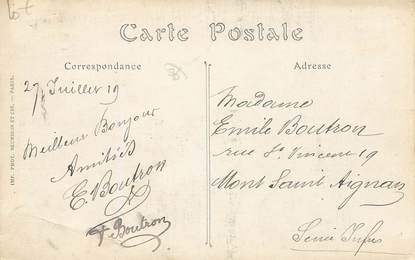 Carte Postale
Correspondance
Adresse
27 Juillet 19
Meilleur Bonjour
Amitiés
E. Boutron
F. Boutron
Madame
Emile Boutron
rue St Vincent 19
Mont Saint Aignan
Seine Infre
IMP. PHOT. NEURDEIN ET CIE. — PARIS.